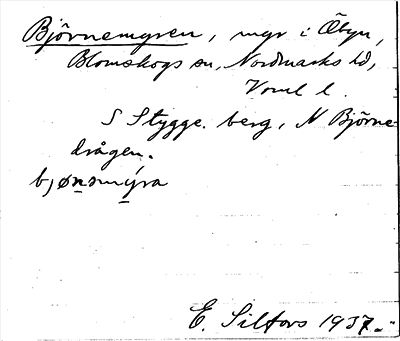 Björnemyren, myr i Åbyn,
Blomskogs sn, Nordmarks hd,
Vrml l.
S Stygge. berg, N Björne-
drågen.
bjønsmýra
E. Silfors 1937.